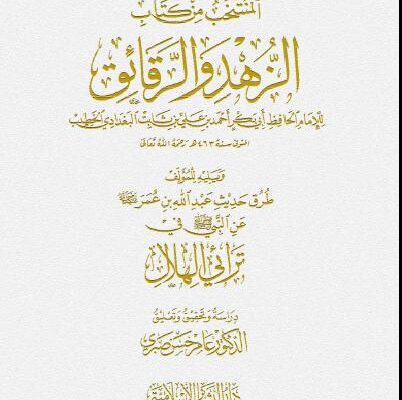 المنتخب من كتاب
الزهد والرقائق
للإمام الحافظ أبي بكر أحمد بن علي بن ثابت البغدادي الخطيب
المتوفى سنة ٤٦٣هـ رحمه الله تعالى
ويليه للمؤلف
طرق حديث عبد الله بن عمر
عن النبي ﷺ في
ترائي الهلال
دراسة وتحقيق وتعليق
الدكتور عامر حسن صبري
دار البشائر الإسلامية